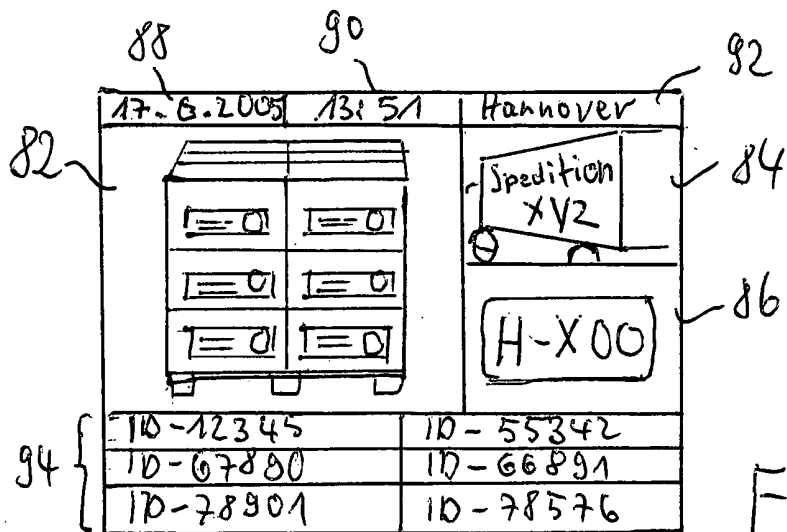 88 90 92
17.6.2005 13:51 Hannover
82
Spedition 84
XYZ
86
H-X00
ID-12345 ID-55342
94 ID-67890 ID-66891
ID-78901 ID-78576
F